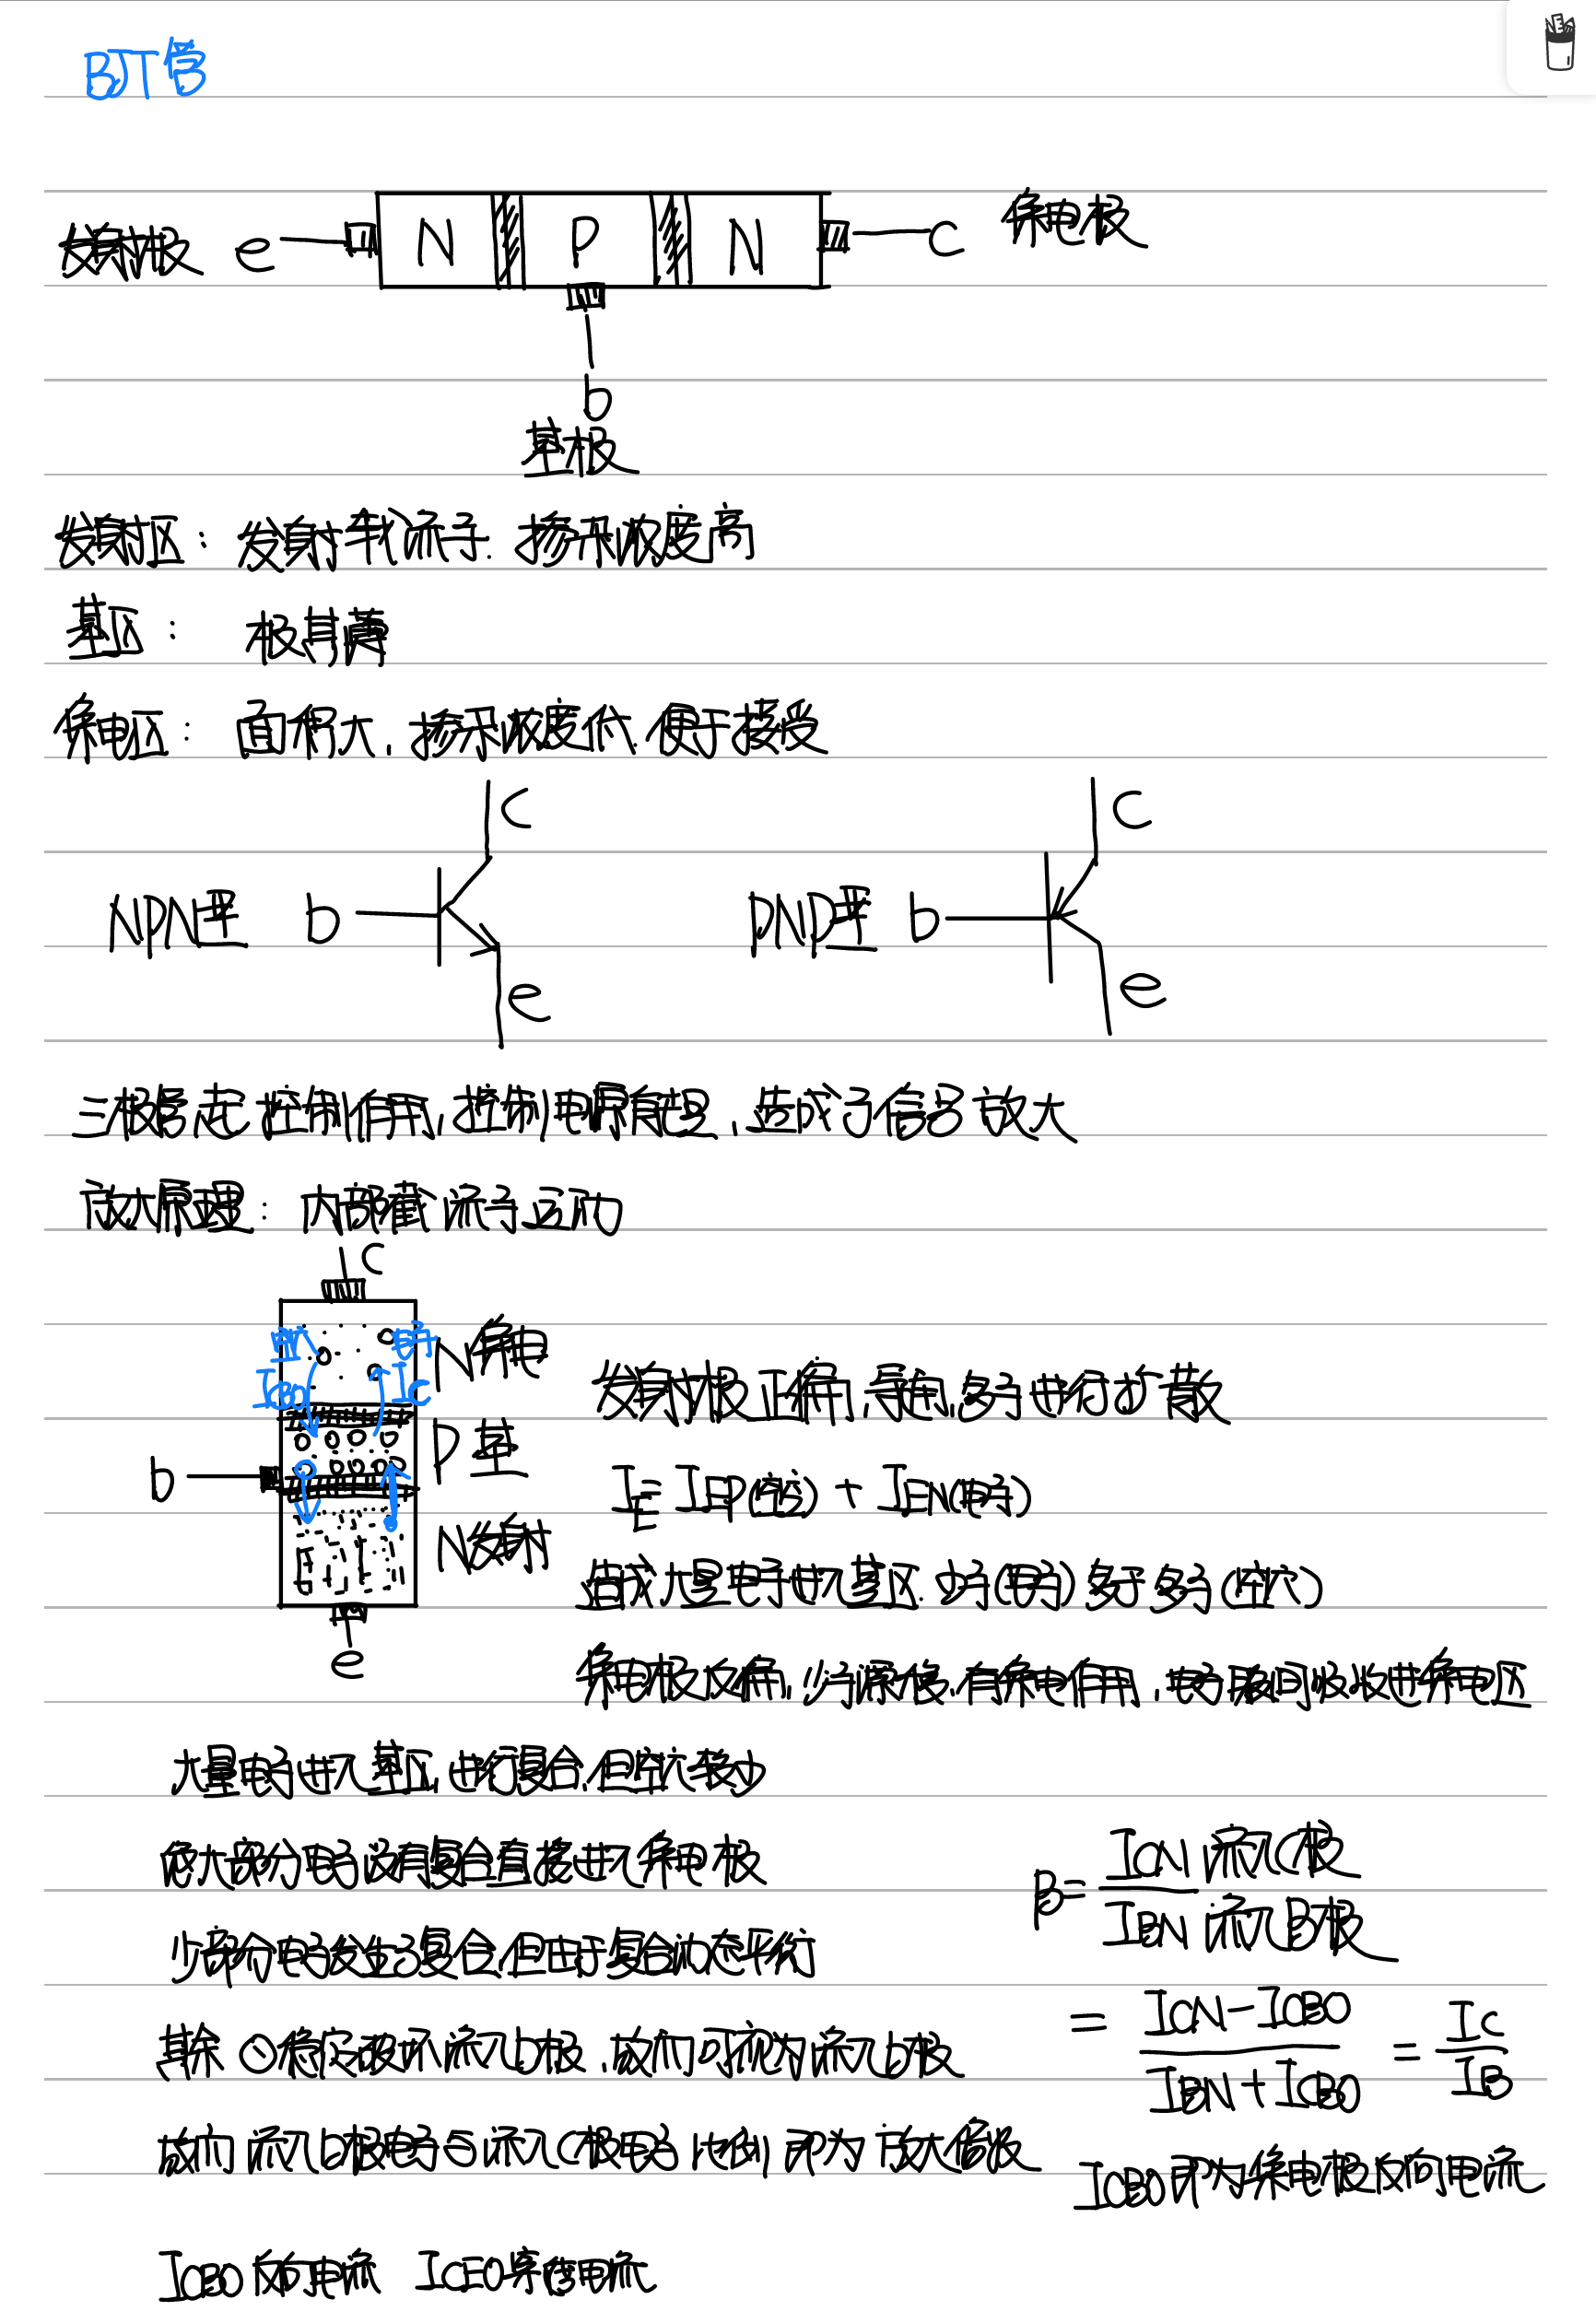 BJT管
发射极 e N P N c 集电极
b
基极
发射区：发射载流子. 掺杂浓度高
基区：极其薄
集电区：面积大，掺杂浓度低.便于接受
c c
NPN型 b PNP型 b
e e
三极管起控制作用，控制电源有些，造成了信号放大
放大原理：内部截流子运动
c
空穴 电子 N集电
ICBO IC
发射极正偏，导通，多子进行扩散
P基
b
IE=IEP(空穴)+IEN(电子)
N发射
造成大量电子进入基区.少子(电子)多于多子(空穴)
e
集电极反偏，少子漂移.有集电作用，电子被回收收进集电区
大量电子进入基区，进行复合，但空穴较少
使大部分电子没有复合直接进入集电极
少部分电子发生了复合，但由于复合动态平衡
其余 稳定破坏流入b极，故而可视为流入b极
故而流入b极电子与流入C极电子比例即为放大倍数
β=ICN流入C极
IBN流入B极
=ICN-ICBO
IBN+ICBO
=IC
IB
ICBO即为集电极反向电流
ICBO反向电流 ICEO穿透电流